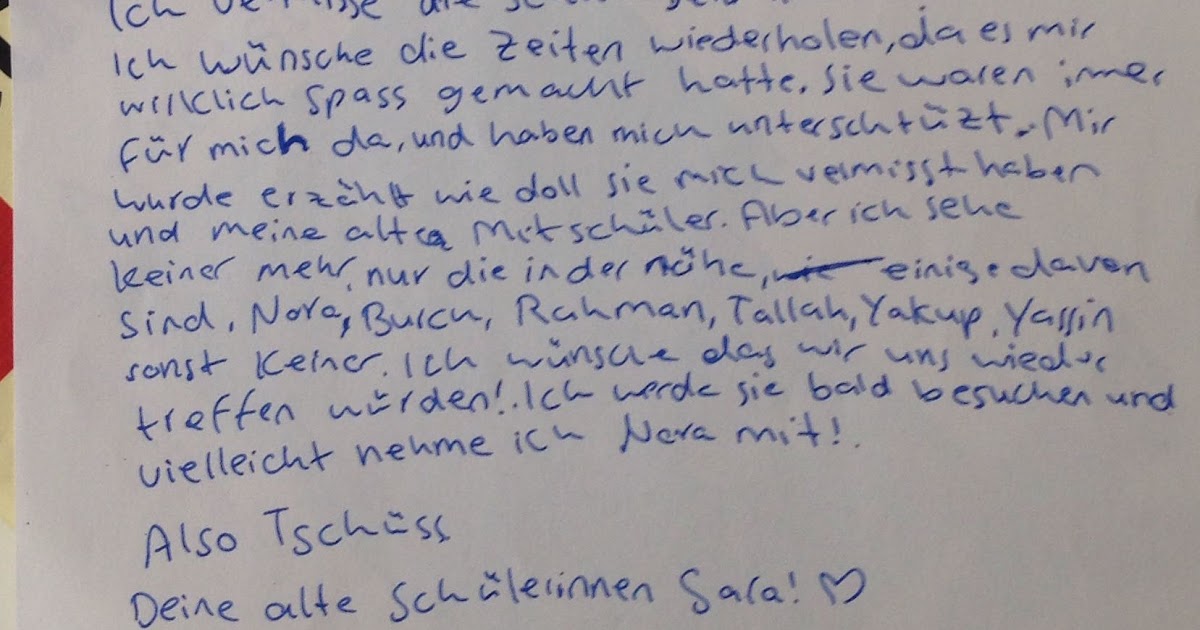 Ich vermisse die
Ich wünsche die Zeiten wiederholen, da es mir
wirklich Spass gemacht hatte. Sie waren immer
für mich da, und haben mich unterschtüzt. Mir
wurde erzählt wie doll sie mich vermisst haben
und meine alte Mitschüler. Aber ich sehe
keiner mehr, nur die in der nähe, einige davon
sind, Nora, Burcu, Rahman, Tallah, Yakup, Yassin
sonst keiner. Ich wünsche das wir uns wieder
treffen würden!. Ich werde sie bald besuchen und
vielleicht nehme ich Nora mit!.
Also Tschüss
Deine alte Schülerinnen Sara! ♡